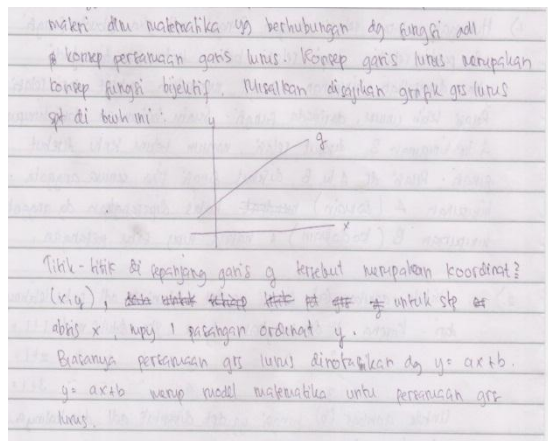 materi dlm matematika yg berhubungan dg fungsi adl
konsep persamaan garis lurus. Konsep garis lurus merupakan
konsep fungsi bijektif. Misalkan disajikan grafik grs lurus
spt di bwh ini :
y
g
x
Titik-titik di sepanjang garis g tersebut merupakan koordinat²
(x,y), untuk stp
absis x, mpy 1 pasangan ordinat y.
Biasanya persamaan grs lurus dinotasikan dg y = ax+b.
y = ax+b merup model matematika untu persamaan grs
lurus.